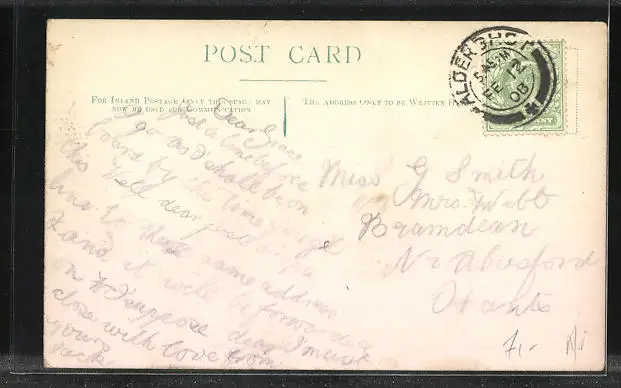 POST CARD
FOR INLAND POSTAGE ONLY THIS SPACE MAY
NOW BE USED FOR COMMUNICATION
THE ADDRESS ONLY TO BE WRITTEN
ALDERSHOT
DE 12
08
Dear Grace
Just a line
I go and shall be on
board by the time you get
this Well dear
line to the same address
and it will be forwarded
on I suppose dear I must
close with love from
yours
Jack
Miss G Smith
Mrs Webb
Bramdean
Nr Alresford
Hants
7/-